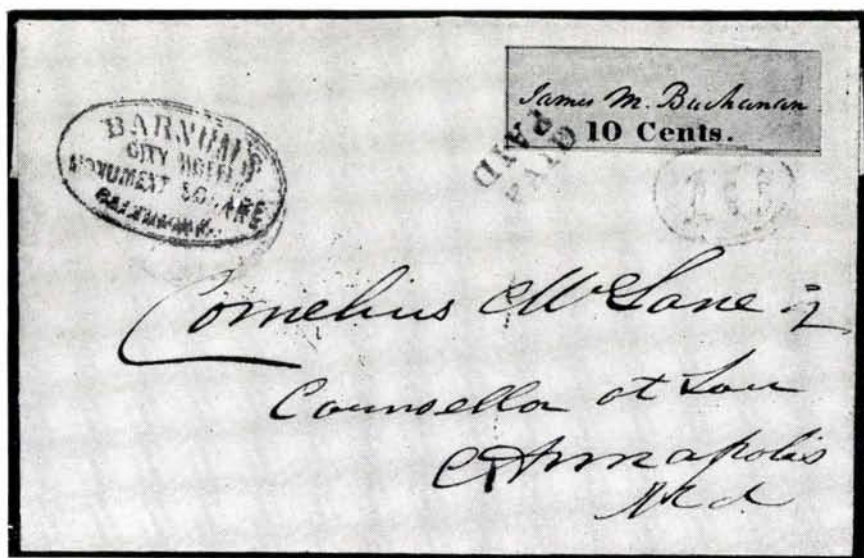 BARNUM'S
CITY HOTEL
MONUMENT SQUARE
BALTIMORE.
James M. Buchanan
10 Cents.
PAID
PAID
10
Cornelius McLane
Counsellor at Law
Annapolis
Md